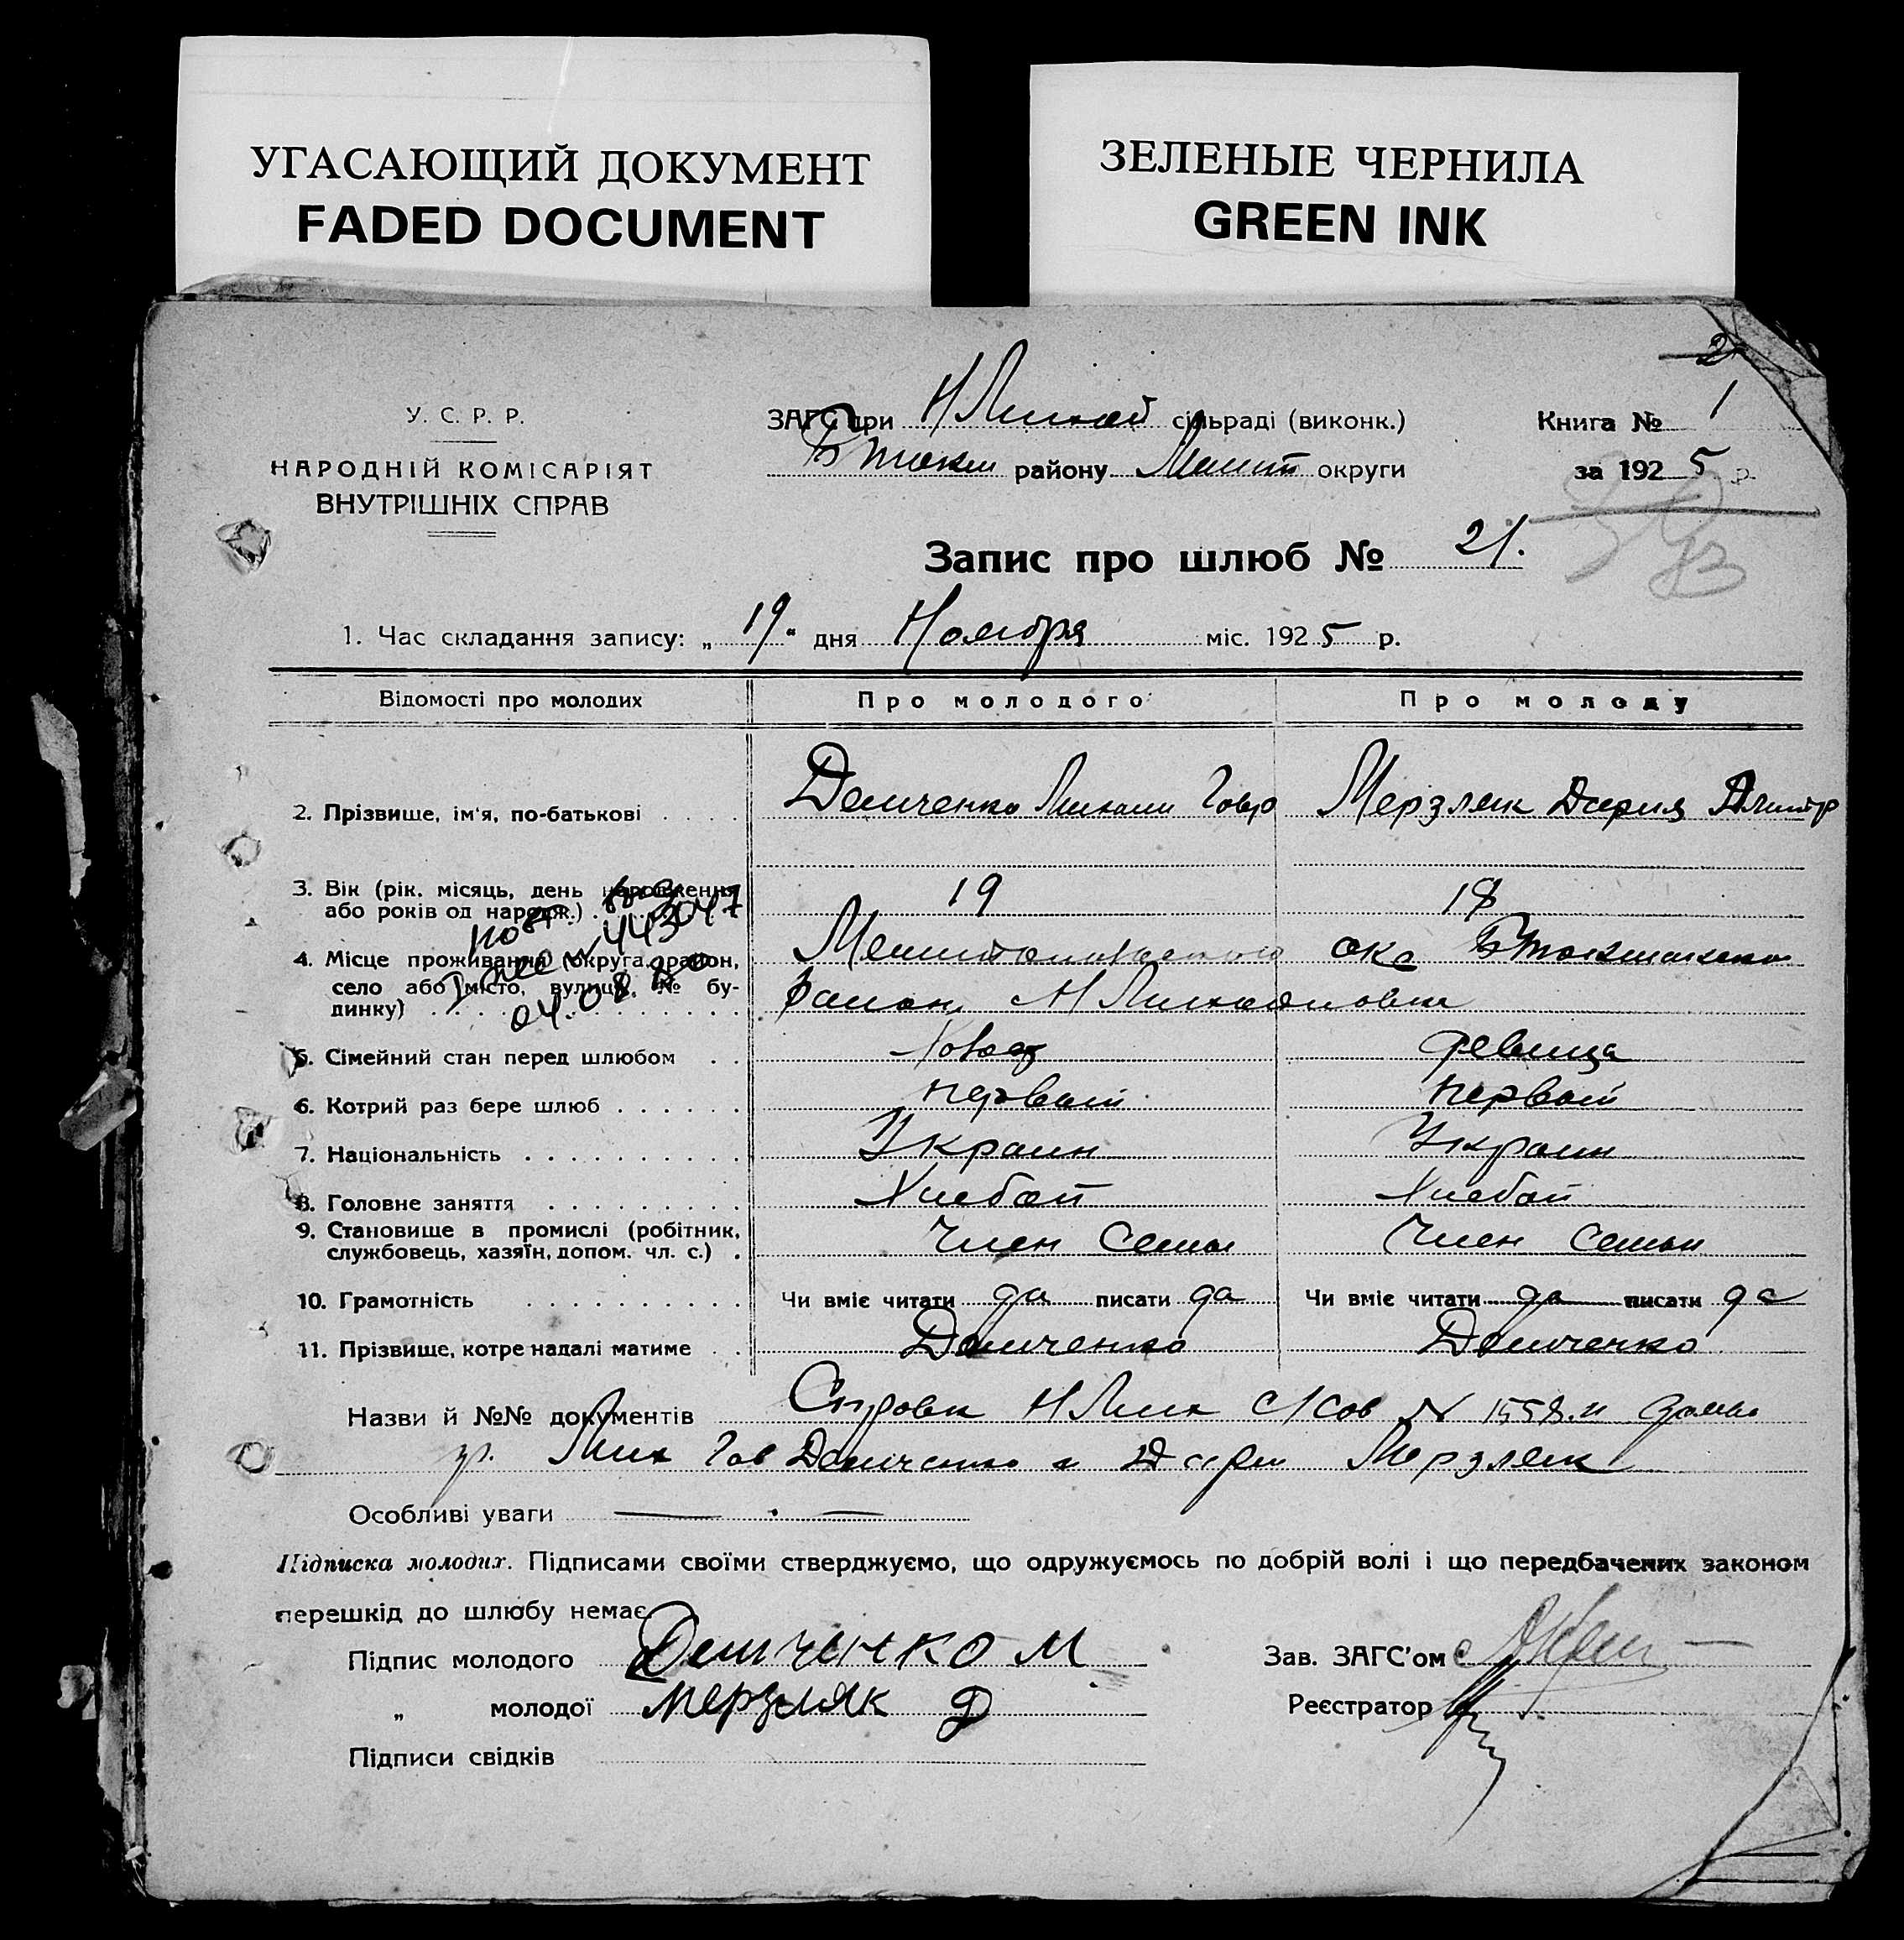 УГАСАЮЩИЙ ДОКУМЕНТ
FADED DOCUMENT
ЗЕЛЕНЫЕ ЧЕРНИЛА
GREEN INK
2
У. С. Р. Р.
НАРОДНІЙ КОМІСАРІЯТ
ВНУТРІШНІХ СПРАВ
ЗАГС при Н Михай сільраді (виконк.)
Б Токм району Мелит округи
Книга № 1
за 1925 р.
Запис про шлюб № 21.
1. Час складання запису: „19“ дня Ноября міс. 1925 р.
Відомості про молодих Про молодого Про молоду
2. Прізвище, ім'я, по-батькові . . . . Демченко Михаил Гавр Мерзляк Дария Дмитр
3. Вік (рік. місяць, день народження
або років од народж.) . 19 18
4. Місце проживання (округа, район,
село або місто, вулиця, № бу-
динку) Мелитопольского окр Б Токмакского
район Н Михайловка
443047
04.08.80
5. Сімейний стан перед шлюбом . . Холост девица
6. Котрий раз бере шлюб . . . . . . первый первый
7. Національність . . . . . . . . . . Украин Украин
8. Головне заняття . . . . . . . . . Хлебоп Хлебоп
9. Становище в промислі (робітник,
службовець, хазяїн, допом. чл. с.) . Член семьи Член семьи
10. Грамотність . . . . . . . . . . Чи вміє читати да писати да Чи вміє читати да писати да
11. Прізвище, котре надалі матиме . . Демченко Демченко
Назви й №№ документів Справк Н Мих с/сов № 1558
гр. Мих Гав Демченко и Дари Мерзляк
Особливі уваги
Підписка молодих. Підписами своїми стверджуємо, що одружуємось по добрій волі і що передбачених законом
перешкід до шлюбу немає.
Підпис молодого Демченко М
„ молодої Мерзляк Д
Підписи свідків
Зав. ЗАГС'ом
Реєстратор